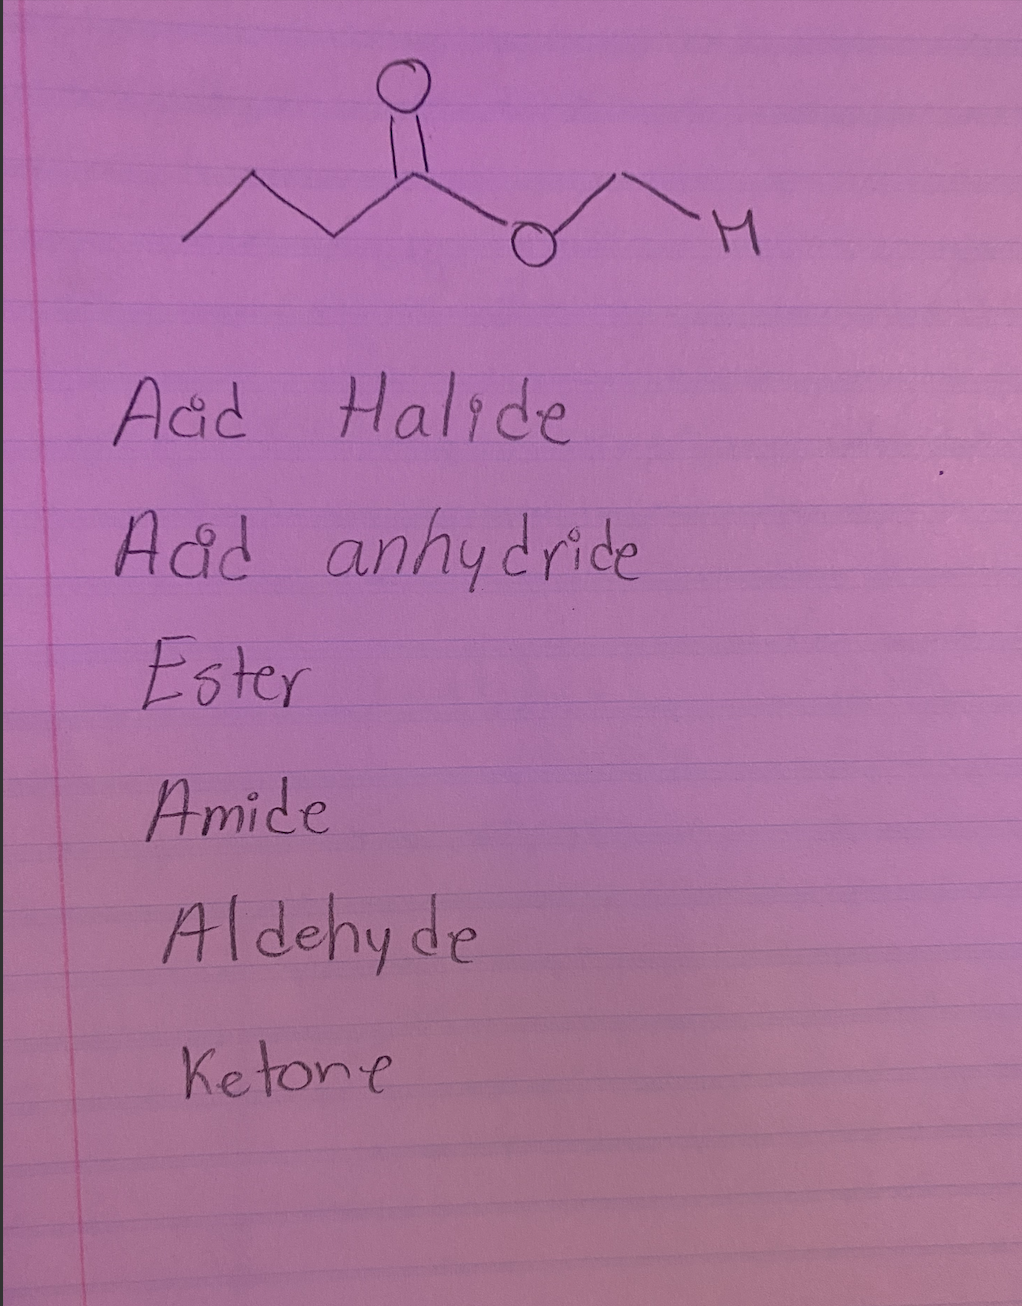 O
O H
Acid Halide
Acid anhydride
Ester
Amide
Aldehyde
Ketone